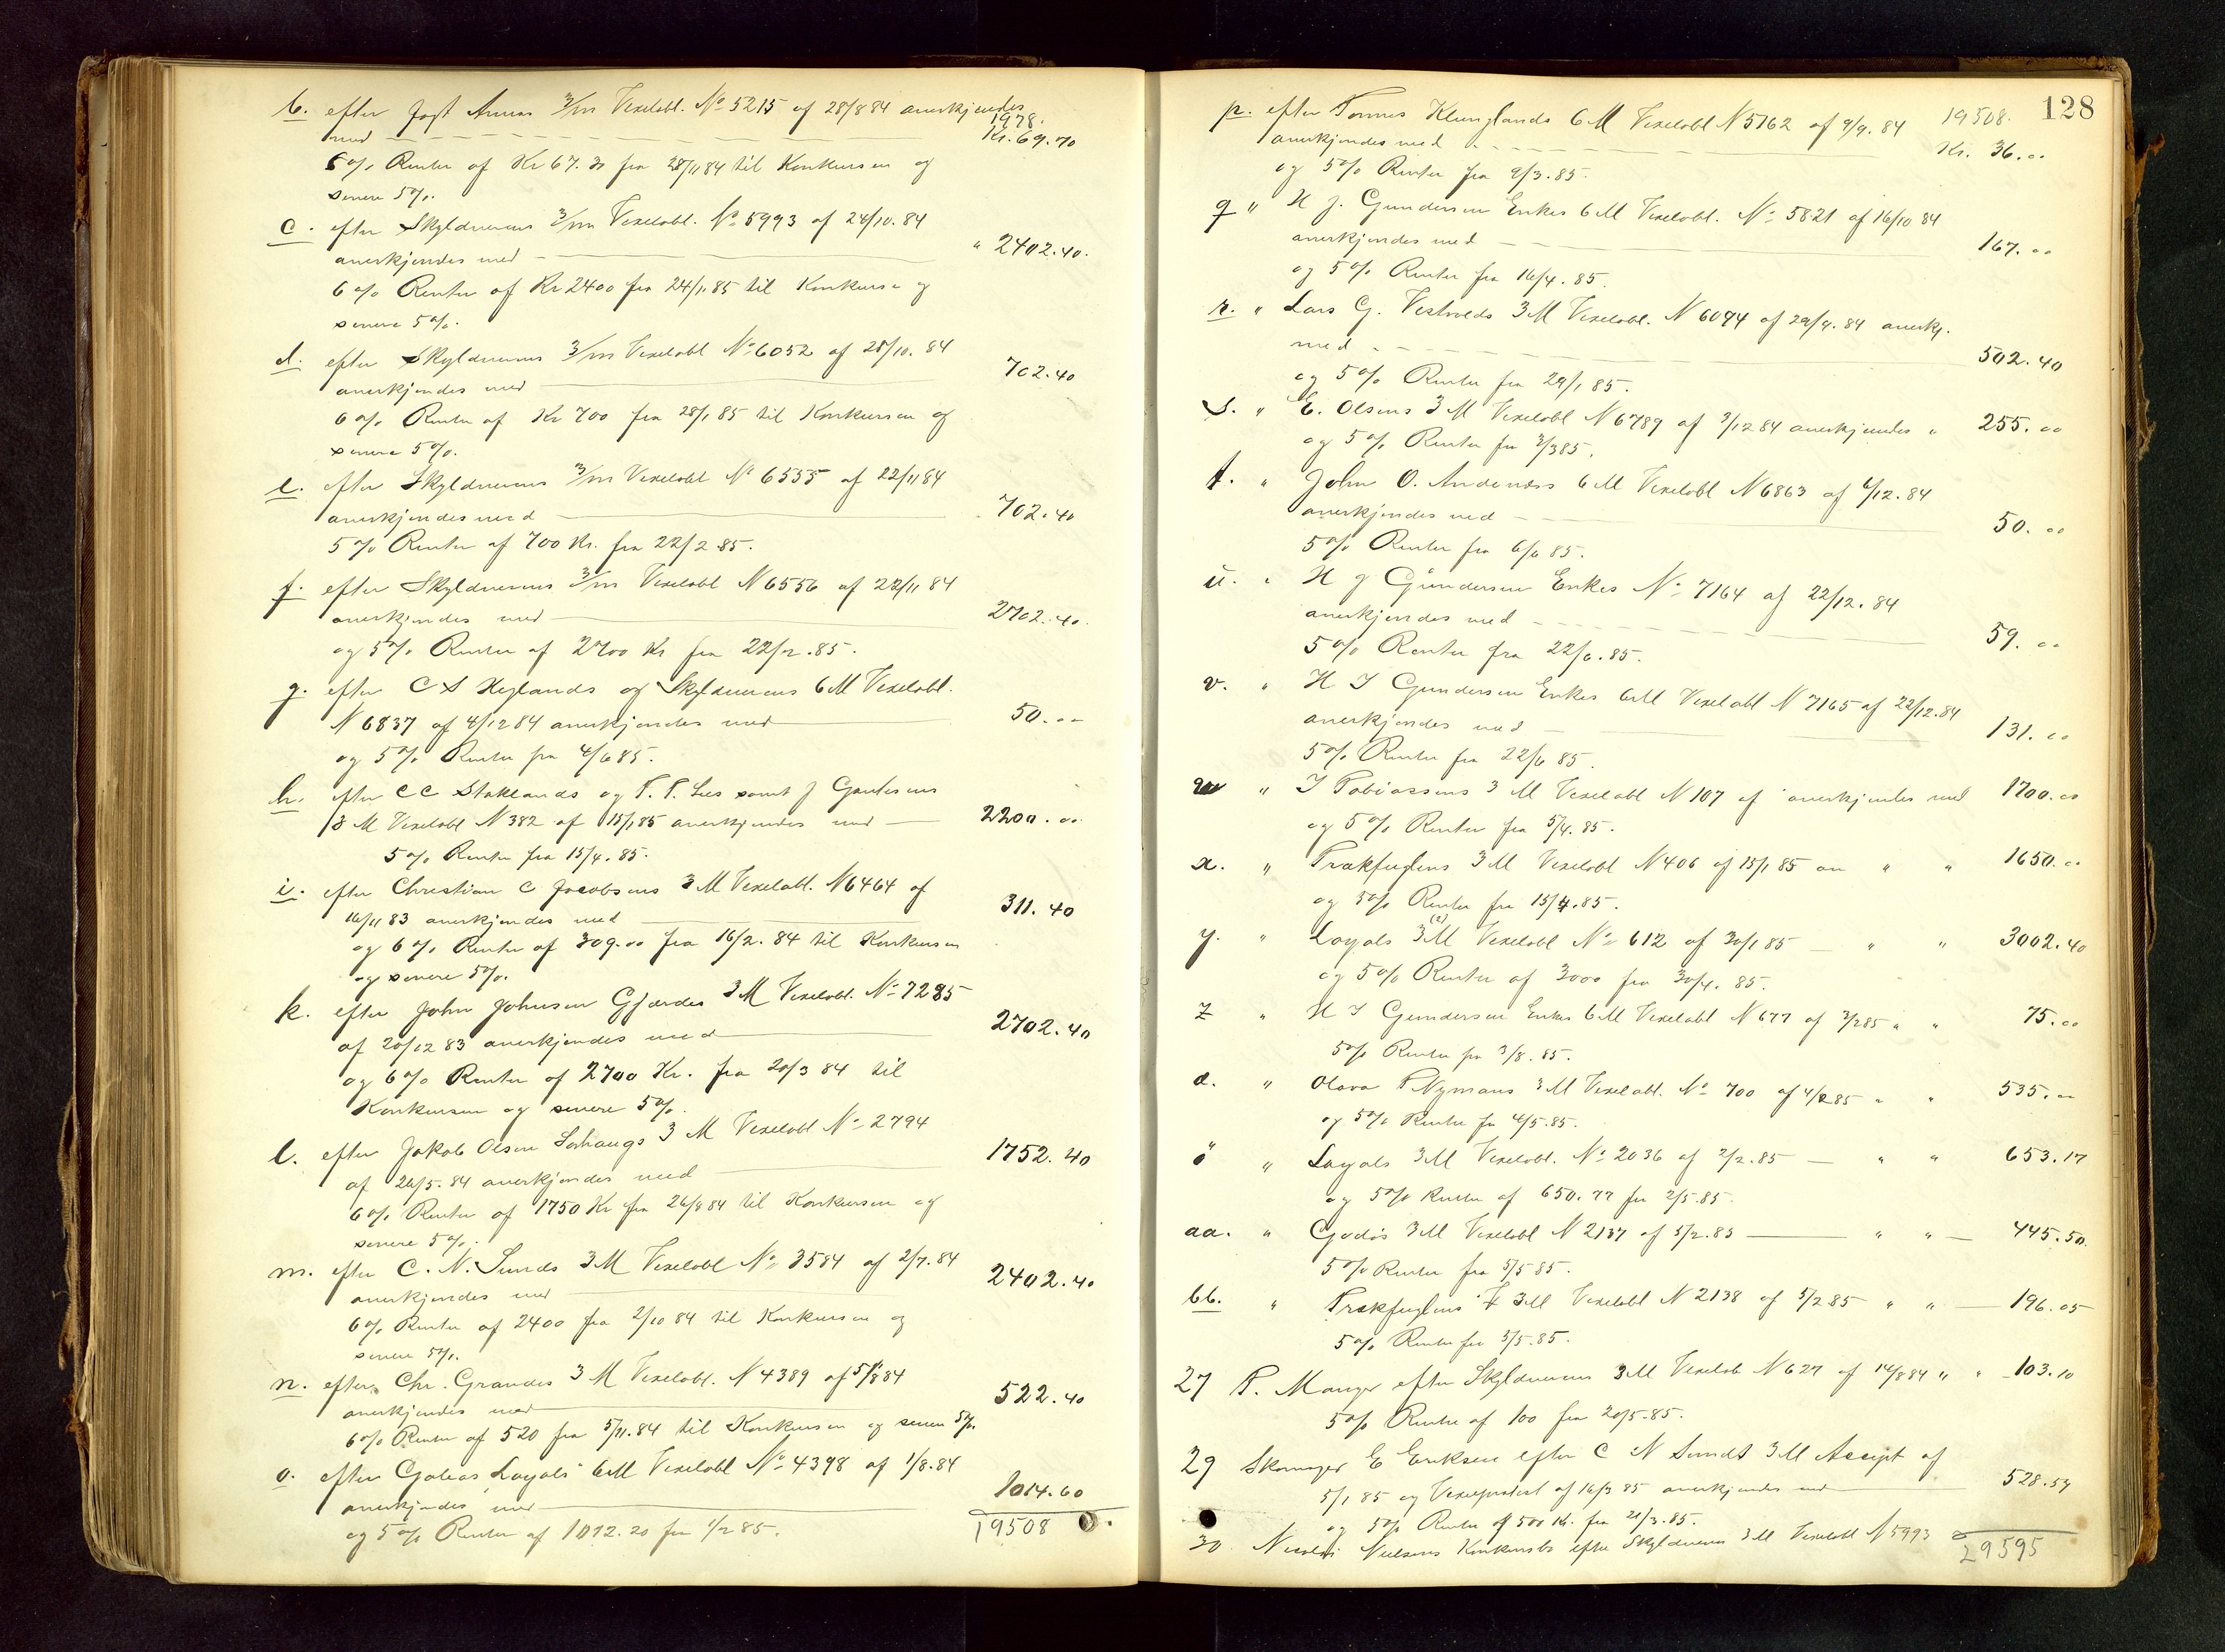 b. efter Jost Annas 3/m Vexelobl. No 5215 af 28/8 84 anerkjendes
1978.
med — Kr. 69.70
6% Renter af Kr 67.30 fra 28/11 84 til Konkursen og
senere 5%.
c. efter Skyldnerens 3/m Vexelobl. No 5993 af 24/10.84
anerkjendes med — " 2402.40.
6% Renter af Kr 2400 fra 24/1.85 til Konkurse og
senere 5%.
d. efter Skyldnerens 3/m Vexelobl No 6052 af 28/10.84
anerkjendes med — 702.40
6% Renter af Kr 700 fra 28/1 85 til Konkursen og
senere 5%.
e. efter Skyldnerens 3/m Vexelobl No 6555 af 22/11 84
anerkjendes med — 702.40
5% Renter af 700 Kr. fra 22/2 85.
f. efter Skyldnerens 3/m Vexelobl N 6556 af 22/11 84
anerkjendes med — 2702.40.
og 5% Renter af 2700 Kr fra 22/2.85.
g. efter C S Heglands og Skyldnerens 6 M Vexelobl.
N 6837 af 4/12 84 anerkjendes med — 50.00
og 5% Renter fra 4/6 85.
h. efter C C Stoklands og T. T. Lies samt J Gautesens
3 M Vexelobl N 382 af 15/1 85 anerkjendes med — 2200.00
5% Renter fra 15/4.85.
i. efter Christian C Jacobsens 3 M Vexelobl. N 6464 af
16/11 83 anerkjendes med — 311.40
og 6% Renter af 309.00 fra 16/2.84 til Konkursen
og senere 5%.
k. efter John Johnsen Gjerdes 3 M Vexelobl. No 7285
af 20/12 83 anerkjendes med — 2702.40
og 6% Renter af 2700 Kr. fra 20/3 84 til
Konkursen og senere 5%.
l. efter Jakob Olsen Sørhaugs 3 M Vexelobl No 2794
af 26/5.84 anerkjendes med — 1752.40
6% Renter af 1750 Kr fra 26/8 84 til Konkursen og
senere 5%.
m. efter C. N. Sunds 3 M Vexelobl No 3584 af 2/7.84
anerkjendes med — 2402.40
6% Renter af 2400 fra 2/10 84 til Konkursen og
senere 5%.
n. efter Chr. Grandes 3 M Vexelobl. N 4389 af 5/8 84
anerkjendes med — 522.40
6% Renter af 520 fra 5/11.84 til Konkursen og senere 5%.
o. efter Gabias Loyals 6 M Vexelobl No 4398 af 1/8.84
anerkjendes med — 1014.60
og 5% Renter af 1012.20 fra 1/2 85. 19508
128
p. efter Tonnes Klunglands 6 M Vexelobl N 5162 af 9/9.84 19508.
anerkjendes med — Kr. 36.00
og 5% Renter fra 9/3.85.
q " H J. Gundersen Enkes 6 M Vexelobl. No 5821 af 16/10 84
anerkjendes med — 167.00
og 5% Renter fra 16/4.85.
r. " Lars G. Vestvolds 3 M Vexelobl. N 6094 af 29/9.84 anerkj.
med — 502.40
og 5% Renter fra 29/1 85.
s. " E. Olsens 3 M Vexelobl N 6789 af 3/12 84 anerkjendes " 255.00
og 5% Renter fra 3/3 85.
t. " John O. Andenæs 6 M Vexelobl N 6863 af 6/12.84
anerkjendes med — 50.00
5% Renter fra 6/6 85.
u. " H J Gundersen Enkes No 7164 af 22/12.84
anerkjendes med — 59.00
5% Renter fra 22/6.85.
v. " H J Gundersen Enkes 6 M Vexelobl N 7165 af 22/12.84
anerkjendes med — 131.00
5% Renter fra 22/6 85.
w " J Tobiassens 3 M Vexelobl N 107 af anerkjendes med 1700.00
og 5% Renter fra 5/4.85.
x. " Trækfuglens 3 M Vexelobl N 406 af 15/1 85 an " " 1650.00
og 5% Renter fra 15/4.85.
y. " Loyals 3 M (2) Vexelobl No 612 af 30/1 85 — " " 3002.40
og 5% Renter af 3000 fra 30/4. 85.
z " H J Gundersen Enkes 6 M Vexelobl N 677 af 3/2 85 " " 75.00
5% Renter fra 3/8.85.
æ. " Olava P Nymans 3 M Vexelobl. No 700 af 4/2 85 " " 535.00
og 5% Renter fra 4/5.85.
ö " Loyals 3 M Vexelobl. No 2036 af 2/2.85 — " " 653.17
og 5% Renter af 650.77 fra 2/5.85.
aa. " Godøs 3 M Vexelobl N 2137 af 5/2.85 — " " — 445.50
5% Renter fra 5/5 85.
bb. " Trækfuglens 3 M Vexelobl N 2138 af 5/2 85 " " — 196.05
5% Renter fra 5/5.85.
27 P. Manger efter Skyldnerens 3 M Vexelob N 627 af 14/8 84 " " 103.10
5% Renter af 100 fra 20/5.85.
29 Skomager E Eriksen efter C N Sundt 3 M Accept af
5/1 85 og Vexelprotest af 16/3 85 anerkjendes med — 528.54
og 5% Renter af 500 Kr. fra 21/3.85.
30 Nicolai Nielsens Konkursbo efter Skyldneren 3 M Vexelobl N 5993
29595